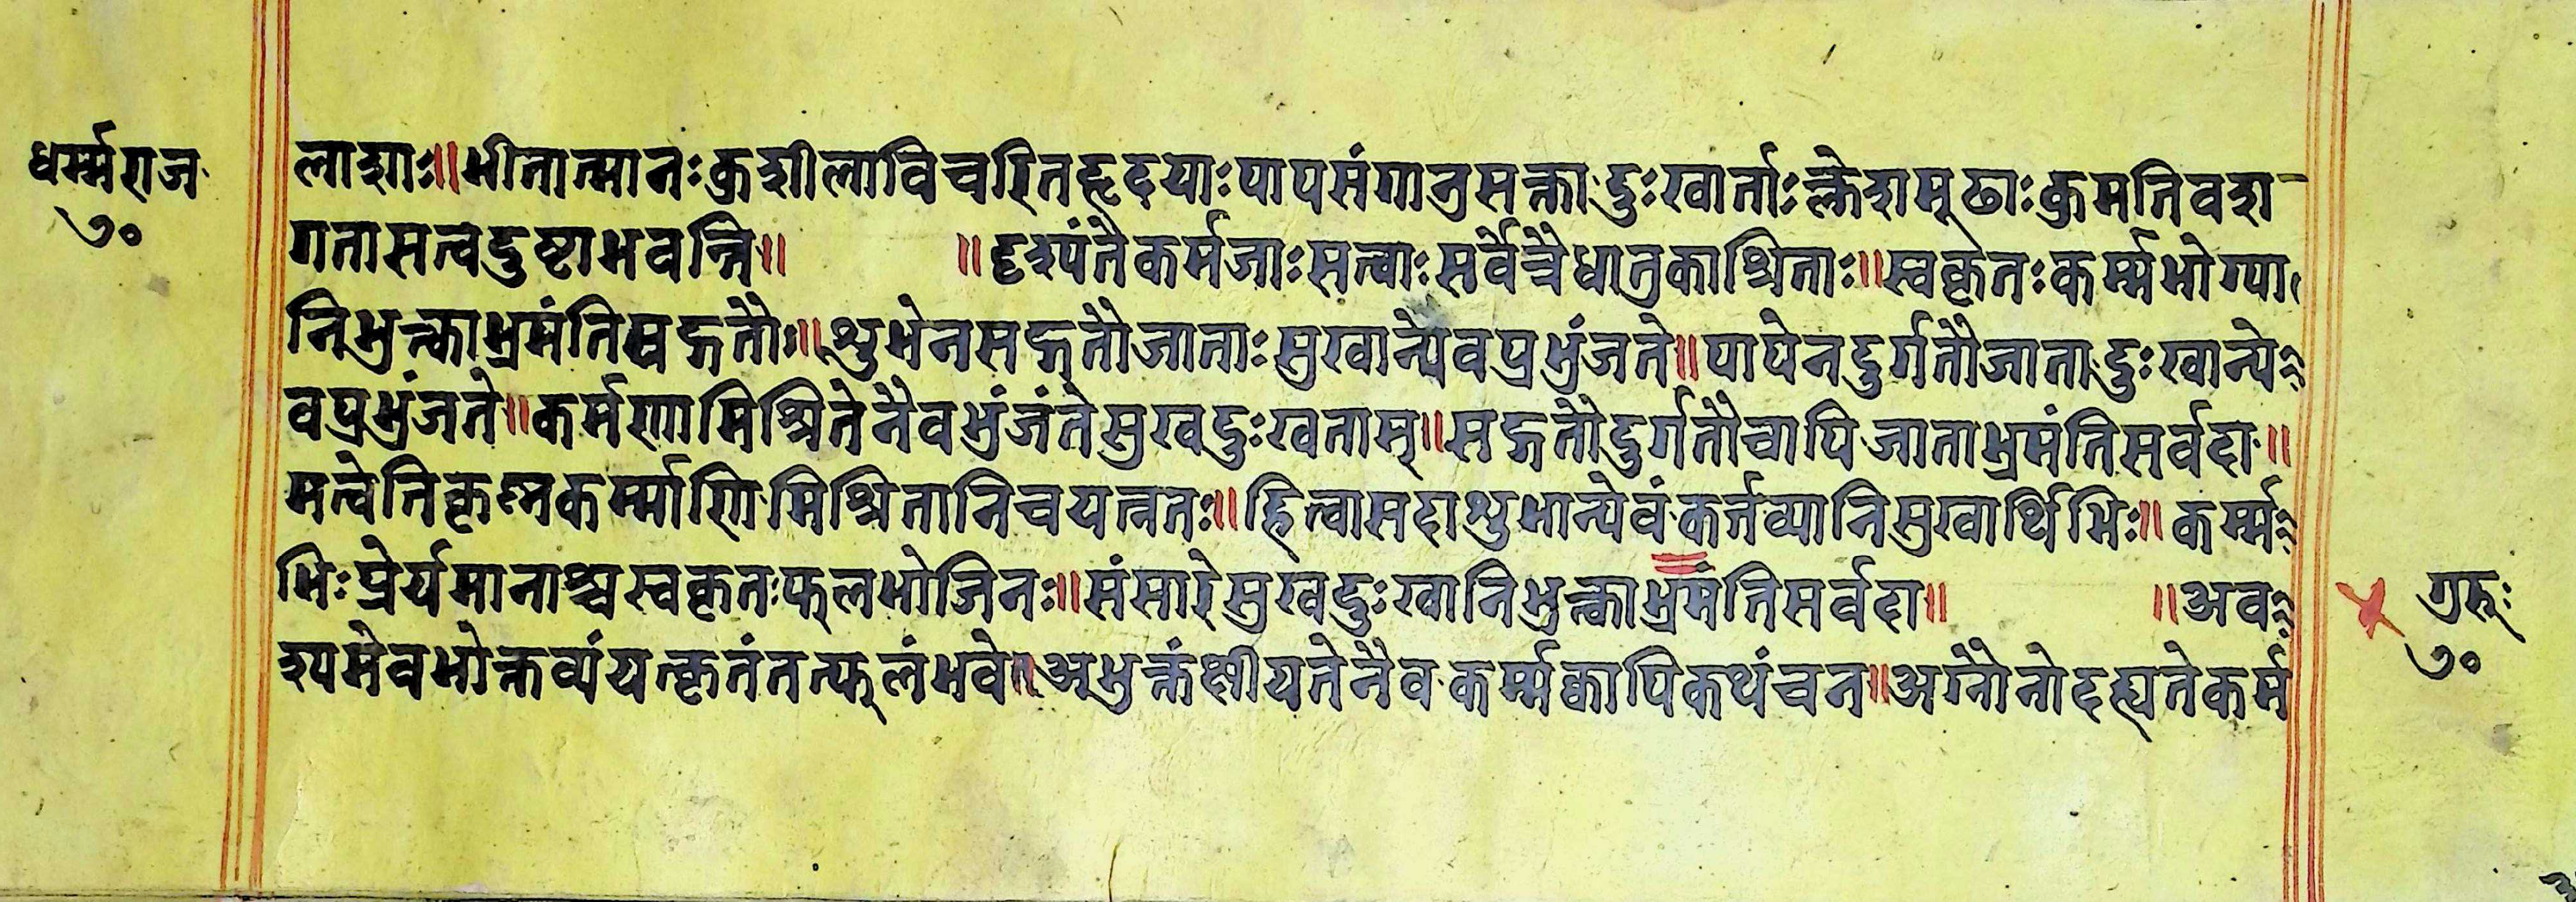 धर्म्मराज
७०
लाशाः॥भीतात्मानःकुशीलाविचरितहृदयाःपापसंगानुसक्तादुःखार्ताःक्लेशमूढाःकुमतिवशा
गतासत्वदुष्टाभवन्ति॥ ॥दृश्यंतैकर्मजाःसत्वाःसर्वेत्रैधातुकाश्रिताः॥स्वकृतःकर्म्मभोग्या
निभुक्त्काभ्रमंतिसद्गतौः॥शुभेनसद्गतौजाताःसुखान्येवप्रभुंजते॥पापेनदुर्गतौजातादुःखान्ये
वप्रभुंजते॥कर्मणामिश्रितेनैवभुंजंतेसुखदुःखताम्॥सद्गतौदुर्गतौचापिजाताभ्रमंतिसर्वदा॥
मत्वेतिकृष्नकर्म्माणिमिश्रितानिचयत्नतः॥हित्वासदाशुभान्येवंकर्तव्यानिसुखार्थिभिः॥कर्म्म
भिःप्रेर्यमानाश्चस्वकृतःफलभोजिनः॥संसारेसुखदुःखानिभुक्त्काभ्रमंतिसर्वदा॥ ॥अव
श्यमेवभोक्तव्यंयत्कृतंतत्फलंभवेत्॥अभुक्तंक्षीयतेनैवकर्म्मक्वापिकथंचन॥अग्नौनोदह्यतेकर्म
गुरूः
७०